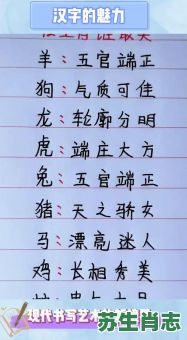 汉字的魅力
羊：五官端正
狗：气质可佳
龙：轮廓分明
虎：端庄大方
兔：五官端正
猪：天之骄女
马：漂亮迷人
鸡：长相秀美
现代书写艺术
苏生肖志